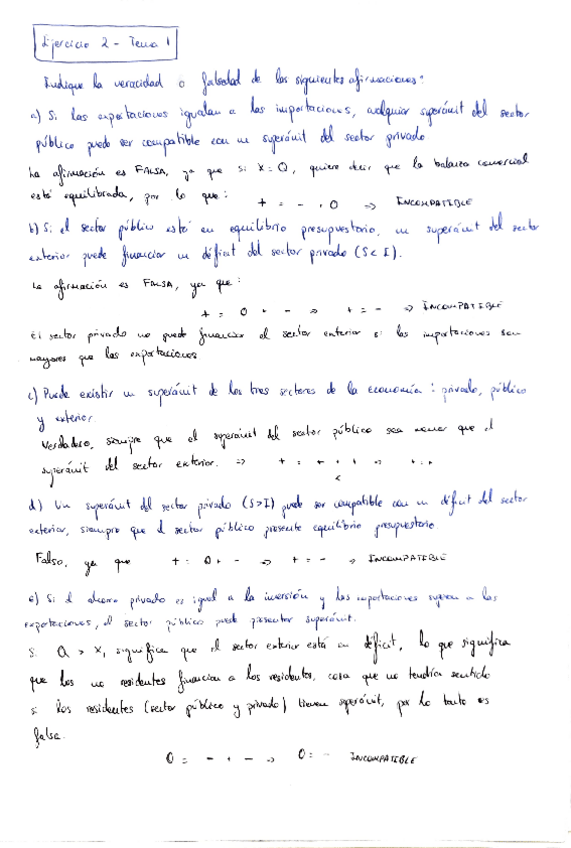 Ejercicio 2 - Tema 1
Indique la veracidad o falsedad de las siguientes afirmaciones:
a) Si las exportaciones igualan a las importaciones, cualquier superávit del sector
público puede ser compatible con un superávit del sector privado
La afirmación es FALSA, ya que si X = Q, quiere decir que la balanza comercial
está equilibrada, por lo que:
+ = - + 0 => INCOMPATIBLE
b) Si el sector público está en equilibrio presupuestario, un superávit del sector
exterior puede financiar un déficit del sector privado (S < I).
La afirmación es FALSA, ya que:
+ = 0 + - => + = - => INCOMPATIBLE
El sector privado no puede financiar el sector exterior si las importaciones son
mayores que las exportaciones
c) Puede existir un superávit de los tres sectores de la economía: privado, público
y exterior.
Verdadero, siempre que el superávit del sector público sea menor que el
superávit del sector exterior. => + = + + + => + = +
<
d) Un superávit del sector privado (S>I) puede ser compatible con un déficit del sector
exterior, siempre que el sector público presente equilibrio presupuestario.
Falso, ya que + = 0 + - => + = - => INCOMPATIBLE
e) Si el ahorro privado es igual a la inversión y las importaciones superan a las
exportaciones, el sector público puede presentar superávit.
Si Q > X, significa que el sector exterior está en déficit, lo que significa
que los no residentes financian a los residentes, cosa que no tendría sentido
si los residentes (sector público y privado) tienen superávit, por lo tanto es
falsa.
0 = - + - => 0 = - INCOMPATIBLE